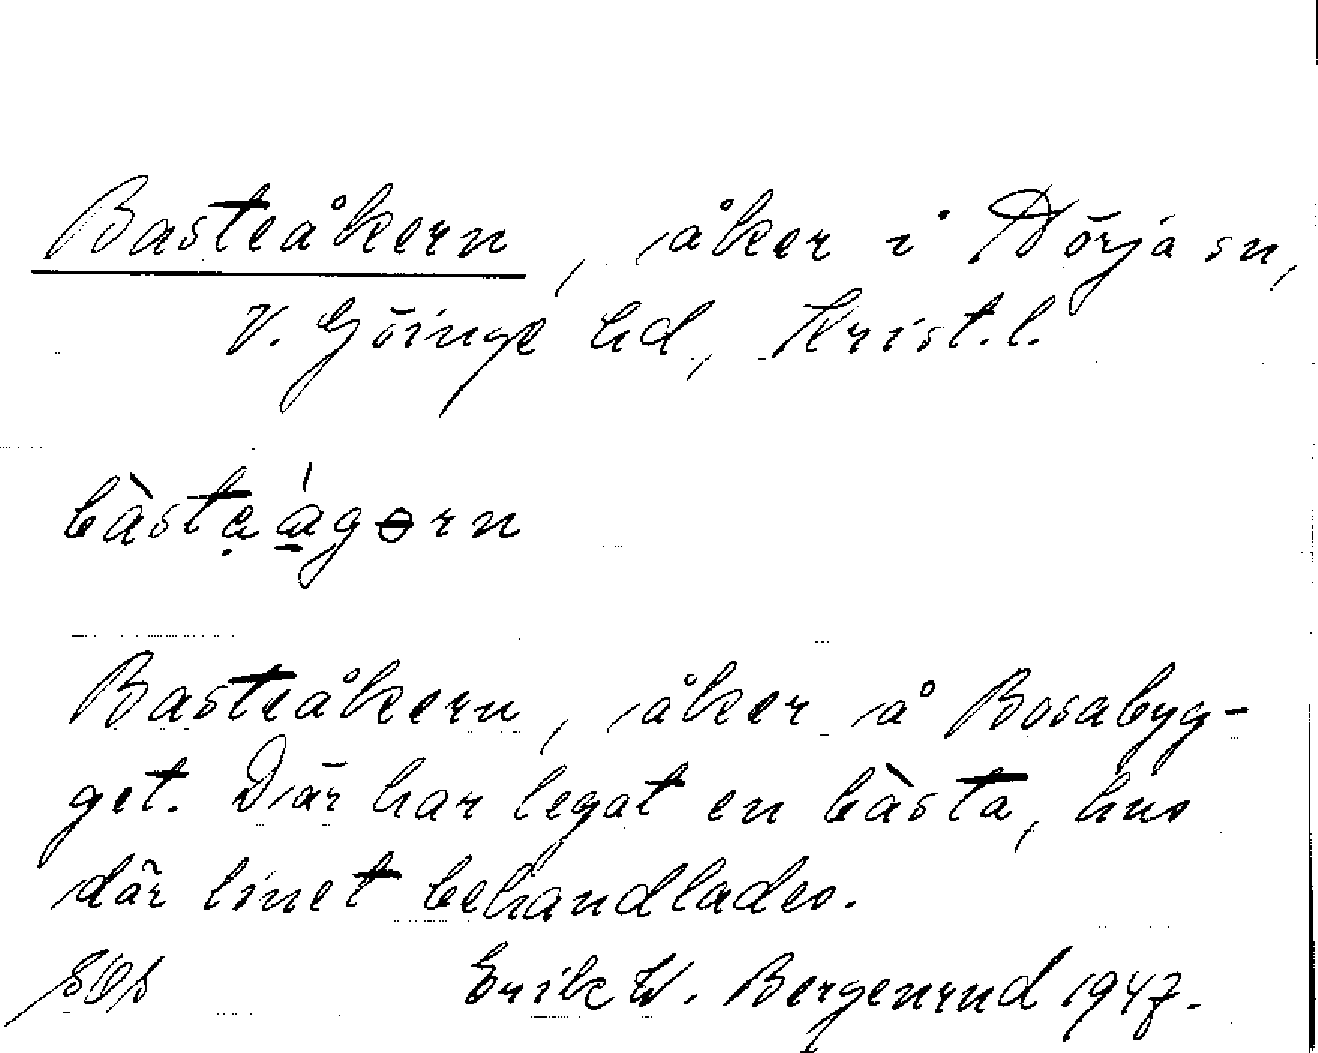 Basteåkern, åker i Nörja sn,
V. Göinge hd, Krist.l.
bàsteágɵrn
Basteåkern, åker å Bosabyg-
get. Där har legat en bàsta, hus
där linet behandlades.
Erik W. Bergenrud 1947.